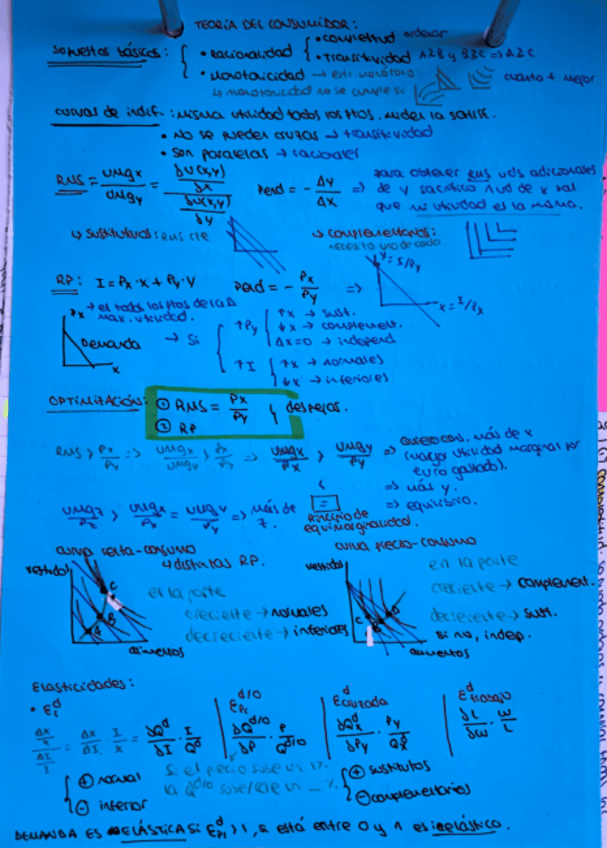 TEORÍA DEL CONSUMIDOR:
Supuestos básicos: { • Racionalidad { • completitud ordenar
• transitividad A≿B y B≿C ⇒ A≿C
• Monotonicidad → estr. monótona: cuanto + mejor
↳ monotonicidad no se cumple si
curvas de indif.: misma utilidad todos los ptos. miden la satisf.
• no se pueden cruzar → transitividad
• son paralelas → racionales
RMS = UMgx / UMgy = ∂U(x,y)/∂x / ∂U(x,y)/∂y
Pend = - Δy/Δx ⇒ para obtener RMS uds adicionales
de y sacrifico 1 ud de x tal
que mi utilidad es la misma.
↳ sustitutivos: RMS cte
↳ complementarios:
necesito uno de cada
RP: I = Px·x + Py·y Pend = - Px/Py ⇒ y = I/Py
x = I/Px
→ el todos los ptos de la Δ
max. utilidad.
Px
Demanda
x
→ Si { ↑Py { ↑x → sust.
↓x → complement.
Δx=0 → independ
↑I { ↑x → normales
↓x → inferiores
OPTIMIZACIÓN: ① RMS = Px/Py } despejas.
② RP
RMS > Px/Py ⇒ UMgx/UMgy > Px/Py ⇒ UMgx/Px > UMgy/Py ⇒ quiero cons. más de x
(mayor utilidad marginal por
euro gastado).
< ⇒ más y.
= ⇒ equilibrio.
UMgz/Pz > UMgx/Px = UMgy/Py ⇒ más de z.
Principio de
equimarginalidad.
curva renta-consumo
↳ distintas RP.
vestido
C
B
A
alimentos
en la parte
creciente → normales
decreciente → inferiores
curva precio-consumo
vestido
C
B
A
alimentos
en la parte
creciente → complement.
decreciente → sust.
si no, indep.
Elasticidades:
• εᵈI
Δx/x / ΔI/I = Δx/ΔI · I/x = ∂Qᵈ/∂I · I/Qᵈ
{ ⊕ normal
⊖ inferior
εᵈ/ᵒPi
∂Qᵈ/ᵒ/∂P · P/Qᵈ/ᵒ
Si el precio sube un 1%
la Qᵈ/ᵒ sube/cae un __%
εᵈcruzada
∂Qᵈx/∂Py · Py/Qᵈx
{ ⊕ sustitutos
⊖ complementarios
εᵈtrabajo
∂L/∂w · w/L
DEMANDA ES ELÁSTICA si εᵈPi > 1, si está entre 0 y 1 es inelástica.